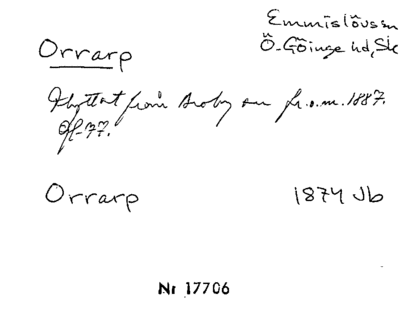 Emmislövssn
Ö-Göinge hd, Sk
Orrarp
Flyttat från Broby sn fr.o.m. 1887.
Of-77.
Orrarp 1874 Jb
Nr 17706